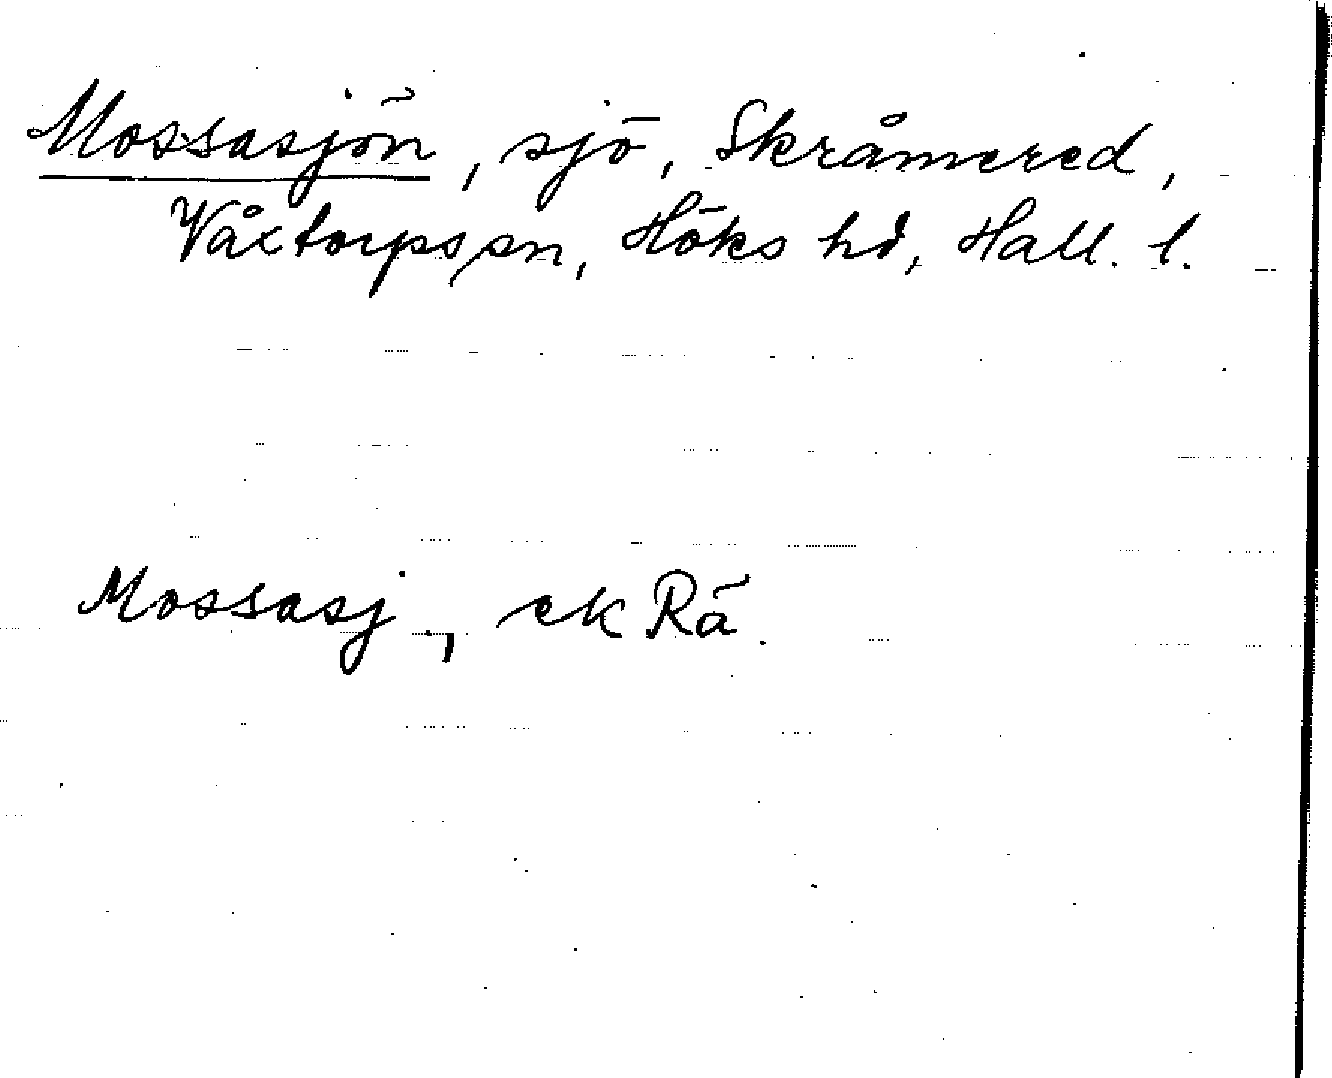 Mossasjön, sjö, Skråmered,
Våxtorps sn, Höks hd, Hall. l.
Mossasj., ek Rä.